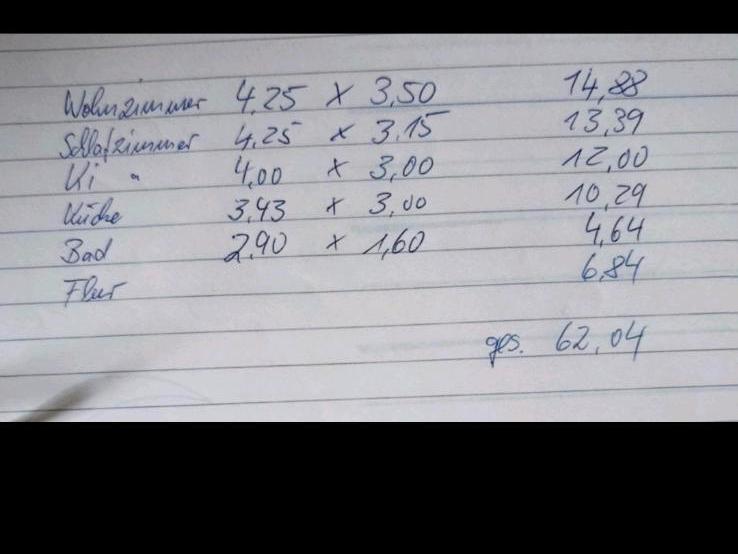 Wohnzimmer 4,25 x 3,50 14,88
Schlafzimmer 4,25 x 3,15 13,39
Ki " 4,00 x 3,00 12,00
Küche 3,43 x 3,00 10,29
Bad 2,90 x 1,60 4,64
Flur 6,84
ges. 62,04